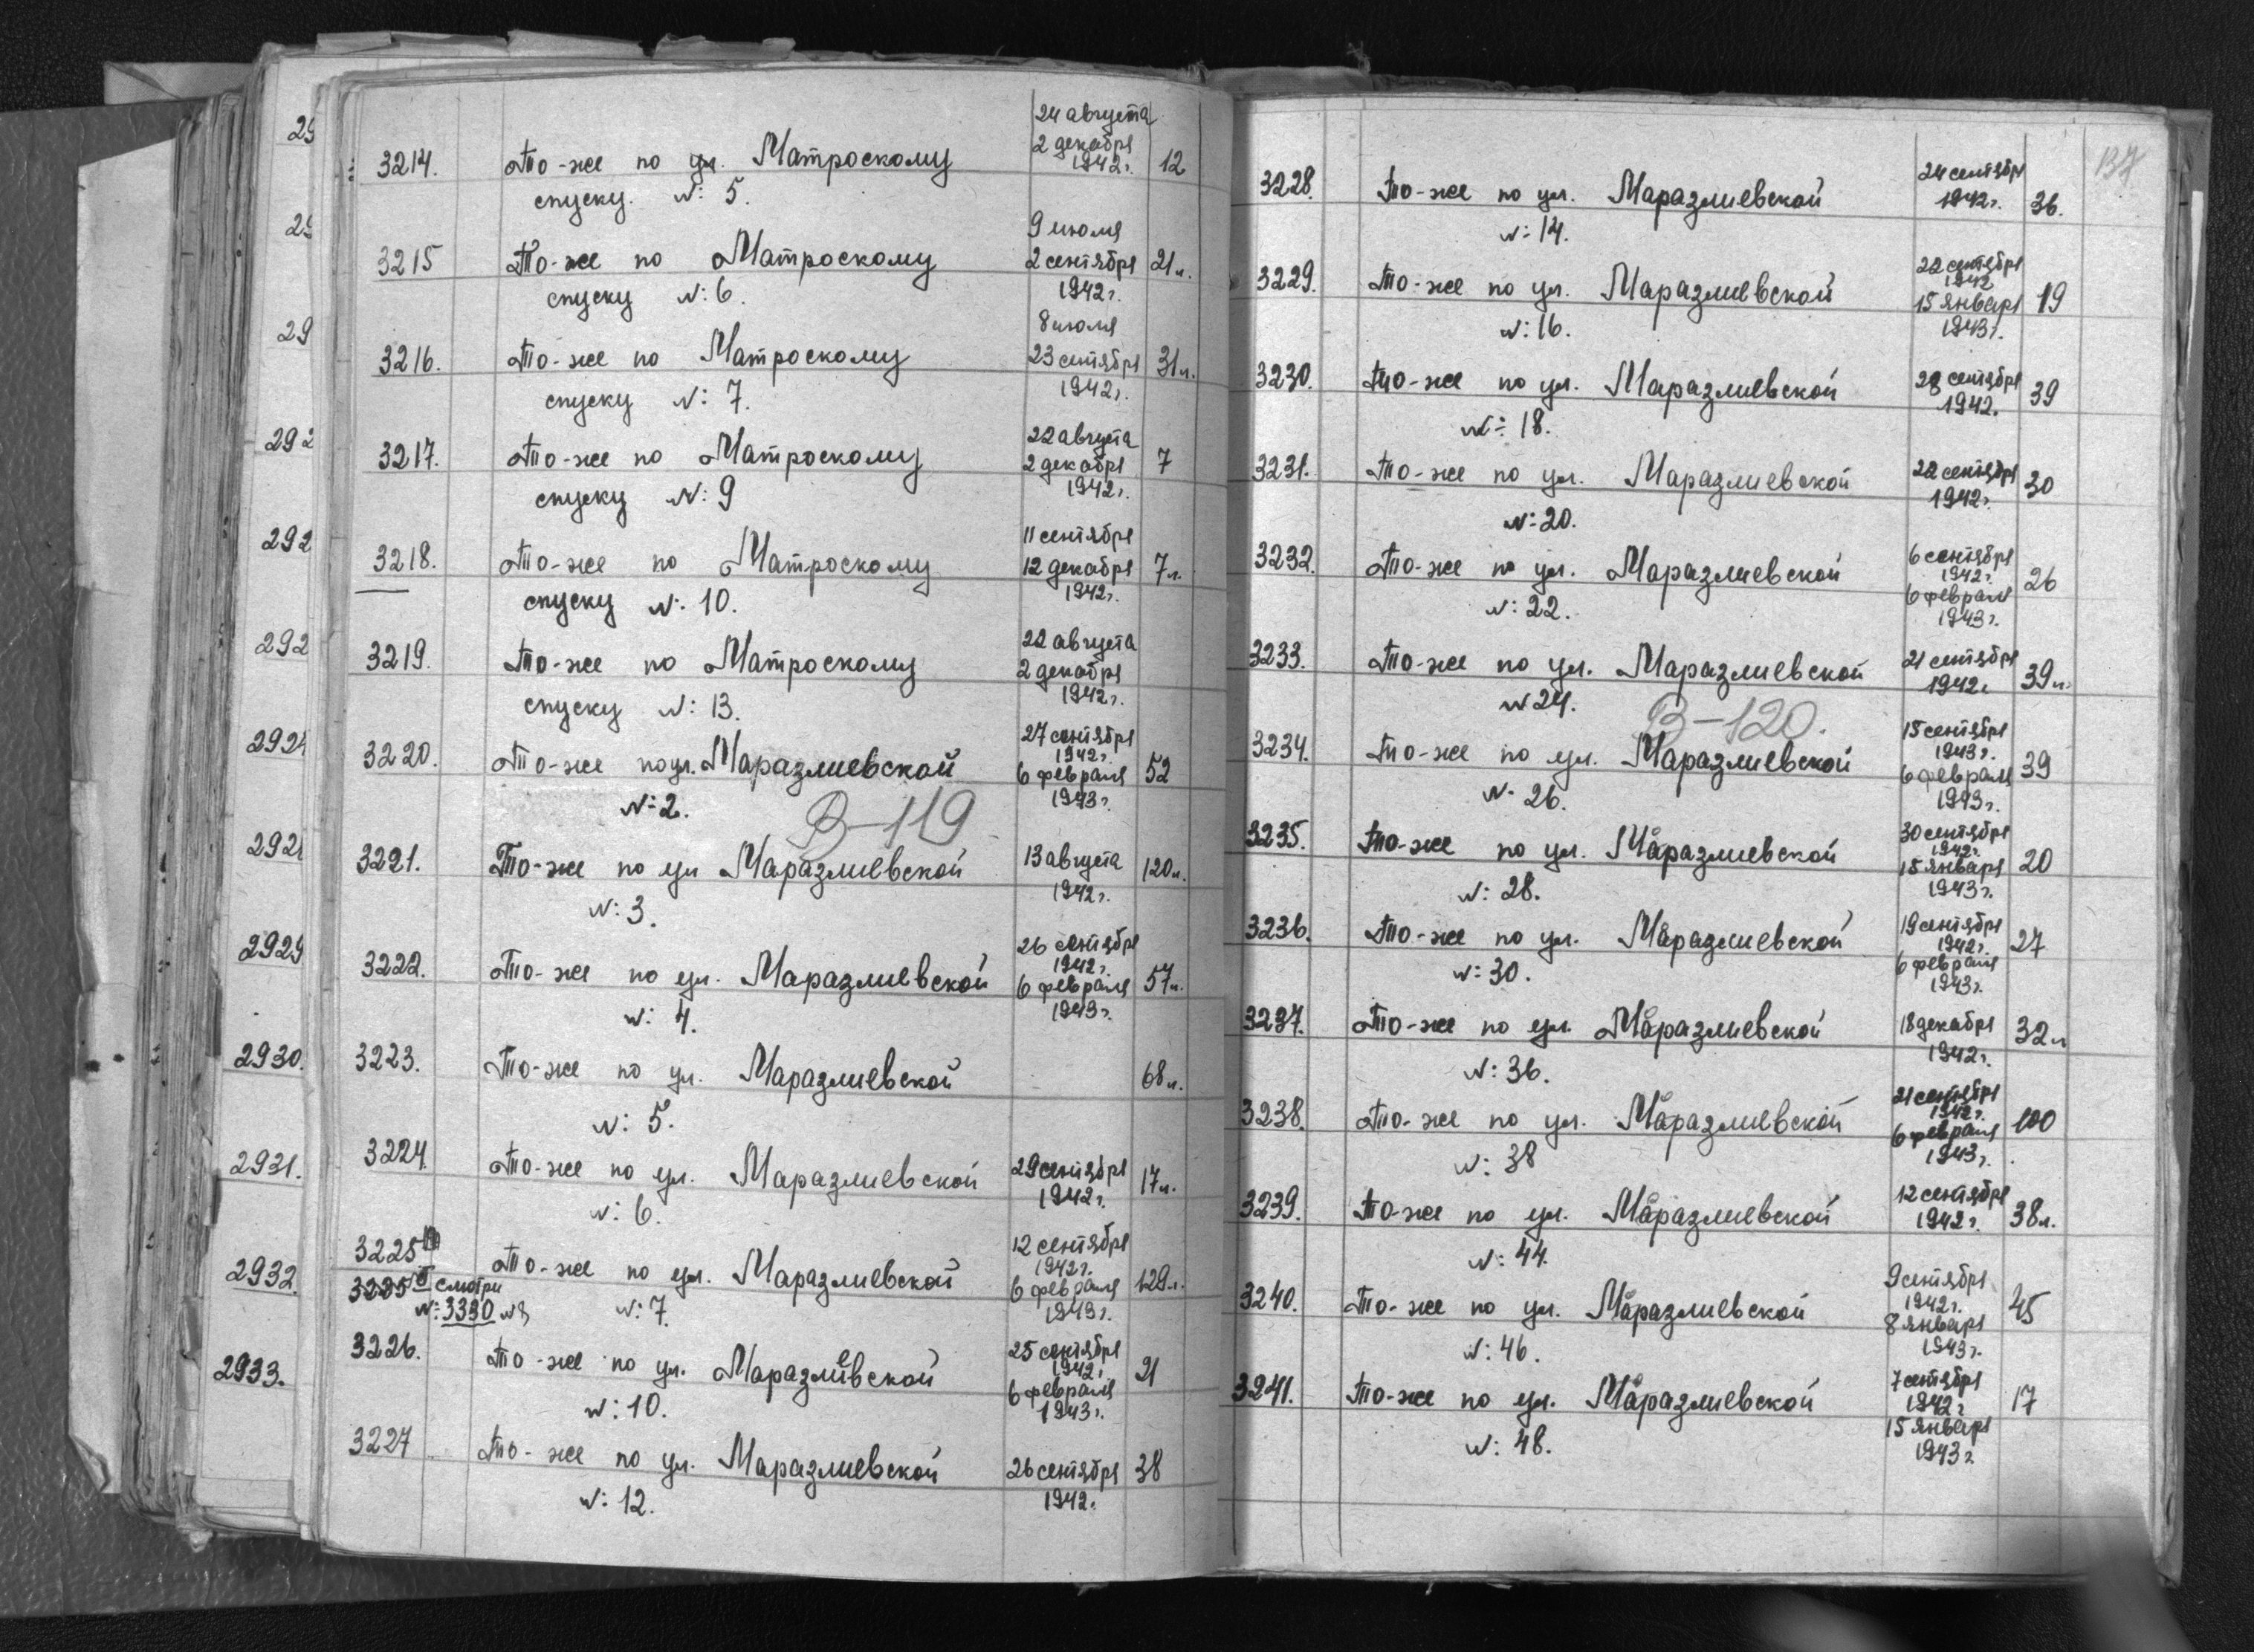 29
29
29
292
292
292
2924
292
2929
2930.
2931.
2932.
2933.
24 августа
3214. То-же по ул. Матроскому 2 декабря 1942г. 12
спуску. №: 5.
9 июля
3215 То-же по Матроскому 2 сентября 21л.
спуску №: 6. 1942г.
8 июля
3216. То-же по Матроскому 23 сентября 31л.
спуску №: 7. 1942г.
22 августа
3217. То-же по Матроскому 2 декабря 7
спуску №: 9 1942г.
11 сентября
3218. То-же по Матроскому 12 декабря 7л.
спуску №: 10. 1942г.
22 августа
3219. То-же по Матроскому 2 декабря
спуску №: 13. 1942г.
27 сентября
1942г.
3220. То-же по ул. Маразлиевской 6 февраля 52
№: 2. 1943г.
В-119
3221. То-же по ул Маразлиевской 13 августа 120л.
№: 3. 1942г.
26 сентября
1942г.
3222. То-же по ул. Маразлиевской 6 февраля 57л.
№: 4. 1943г.
3223. То-же по ул. Маразлиевской 68л.
№: 5.
3224. То-же по ул. Маразлиевской 29 сентября 17л.
№: 6. 1942г.
3225 12 сентября
1942г.
То-же по ул. Маразлиевской 6 февраля 129л.
3225б смотри
№: 3330 №: 7. 1943г.
25 сентября
3226. То-же по ул. Маразлиевской 1942г. 21
6 февраля
№: 10. 1943г.
3227 То-же по ул. Маразлиевской 26 сентября 38
№: 12. 1942.
137
24 сентября
3228. То-же по ул. Маразлиевской 1942г. 36.
№: 14.
22 сентября
1942
3229. То-же по ул. Маразлиевской 15 января 19
№: 16. 1943г.
3230. То-же по ул. Маразлиевской 28 сентября 39
№: 18. 1942.
3231. То-же по ул. Маразлиевской 22 сентября 30
№: 20. 1942г.
6 сентября
3232. То-же по ул. Маразлиевской 1942г. 26
6 февраля
№: 22. 1943г.
3233. То-же по ул. Маразлиевской 21 сентября 39л.
№ 24. 1942г.
В-120.
15 сентября
1943г.
3234. То-же по ул. Маразлиевской 6 февраля 39
№ 26. 1943г.
30 сентября
1942г.
3235. То-же по ул. Маразлиевской 15 января 20
№: 28. 1943г.
19 сентября
3236. То-же по ул. Маразлиевской 1942г. 27
6 февраля
№: 30. 1943г.
3237. То-же по ул. Маразлиевской 18 декабря 32л
№: 36. 1942г.
21 сентября
1942г.
3238. То-же по ул. Маразлиевской 6 февраля 100
№: 38 1943г.
12 сентября
3239. То-же по ул. Маразлиевской 1942г. 38л.
№: 44.
9 сентября
3240. То-же по ул. Маразлиевской 1942г. 45
8 января
№: 46. 1943г.
7 сентября
3241. То-же по ул. Маразлиевской 1942г 17
15 января
№: 48. 1943г